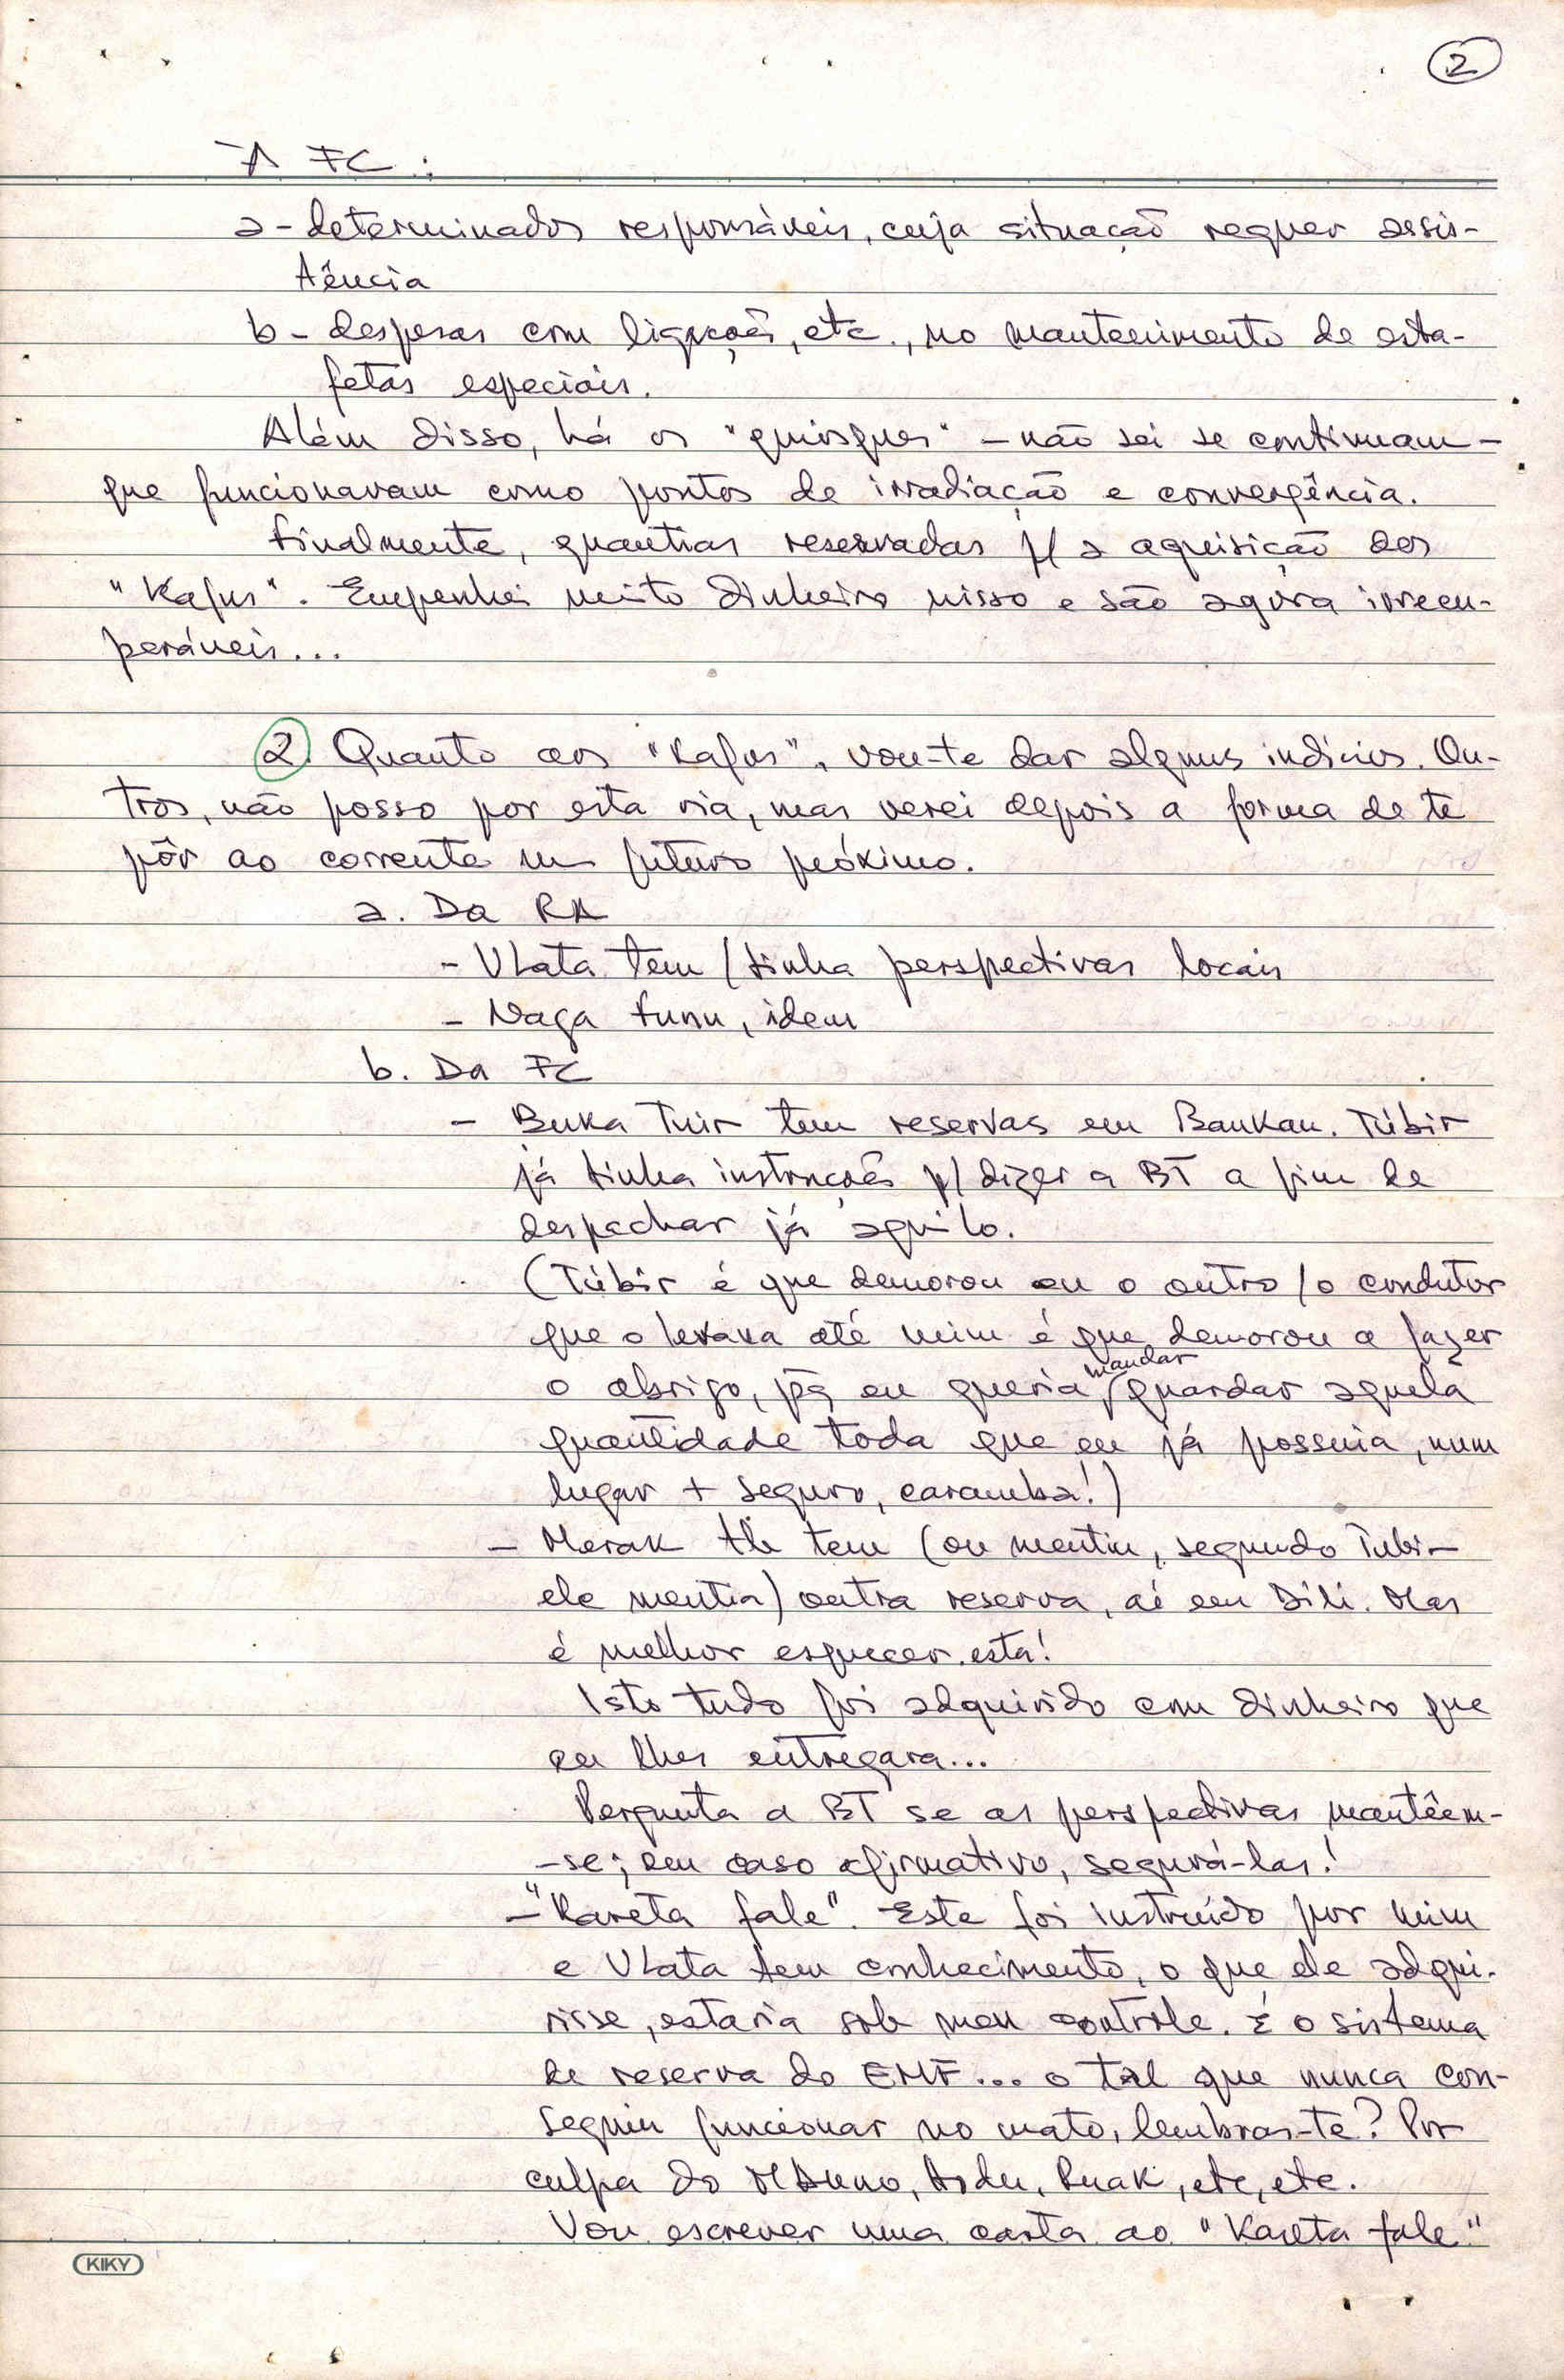 2
À FC :
a - determinados responsáveis, cuja situação requer assis-
tência
b - despesas com ligações, etc., no mantenimento de esta-
fetas especiais.
Além disso, há os "quiosques" - não sei se continuam -
que funcionavam como pontos de irradiação e convergência.
Finalmente, quantias reservadas p/ a aquisição dos
"Kafus". Empenhei muito dinheiro nisso e são agora irrecu-
peráveis...
2. Quanto aos "Kafus", vou-te dar alguns indícios. Ou-
tros, não posso por esta via, mas verei depois a forma de te
pôr ao corrente num futuro próximo.
a. Da RA
- VLata tem / tinha perspectivas locais
- Naga funu, idem
b. Da FC
- Buka Tuir tem reservas em Baukau. Túbir
já tinha instruções p/ dizer a BT a fim de
despachar já aquilo.
(Túbir é que demorou ou o outro / o condutor
que o levava até mim é que demorou a fazer
o abrigo, pq eu queria mandar guardar aquela
quantidade toda que eu já possuia, num
lugar + seguro, caramba!)
- Merak tem (ou mentiu, segundo Tubir
ele mentia) outra reserva, aí em Dili. Mas
é melhor esquecer esta!
Isto tudo foi adquirido com dinheiro que
eu lhes entregara...
Pergunta a BT se as perspectivas mantêem-
-se; em caso afirmativo, segurá-las!
- "Kareta fale". Este foi instruído por mim
e VLata tem conhecimento, o que ele adqui-
risse, estaria sob meu controle. É o sistema
de reserva do EMF... o tal que nunca con-
seguiu funcionar no mato, lembras-te? Por
culpa do MHuno, Ruak, etc, etc.
Vou escrever uma carta ao "Kareta fale"
KIKY